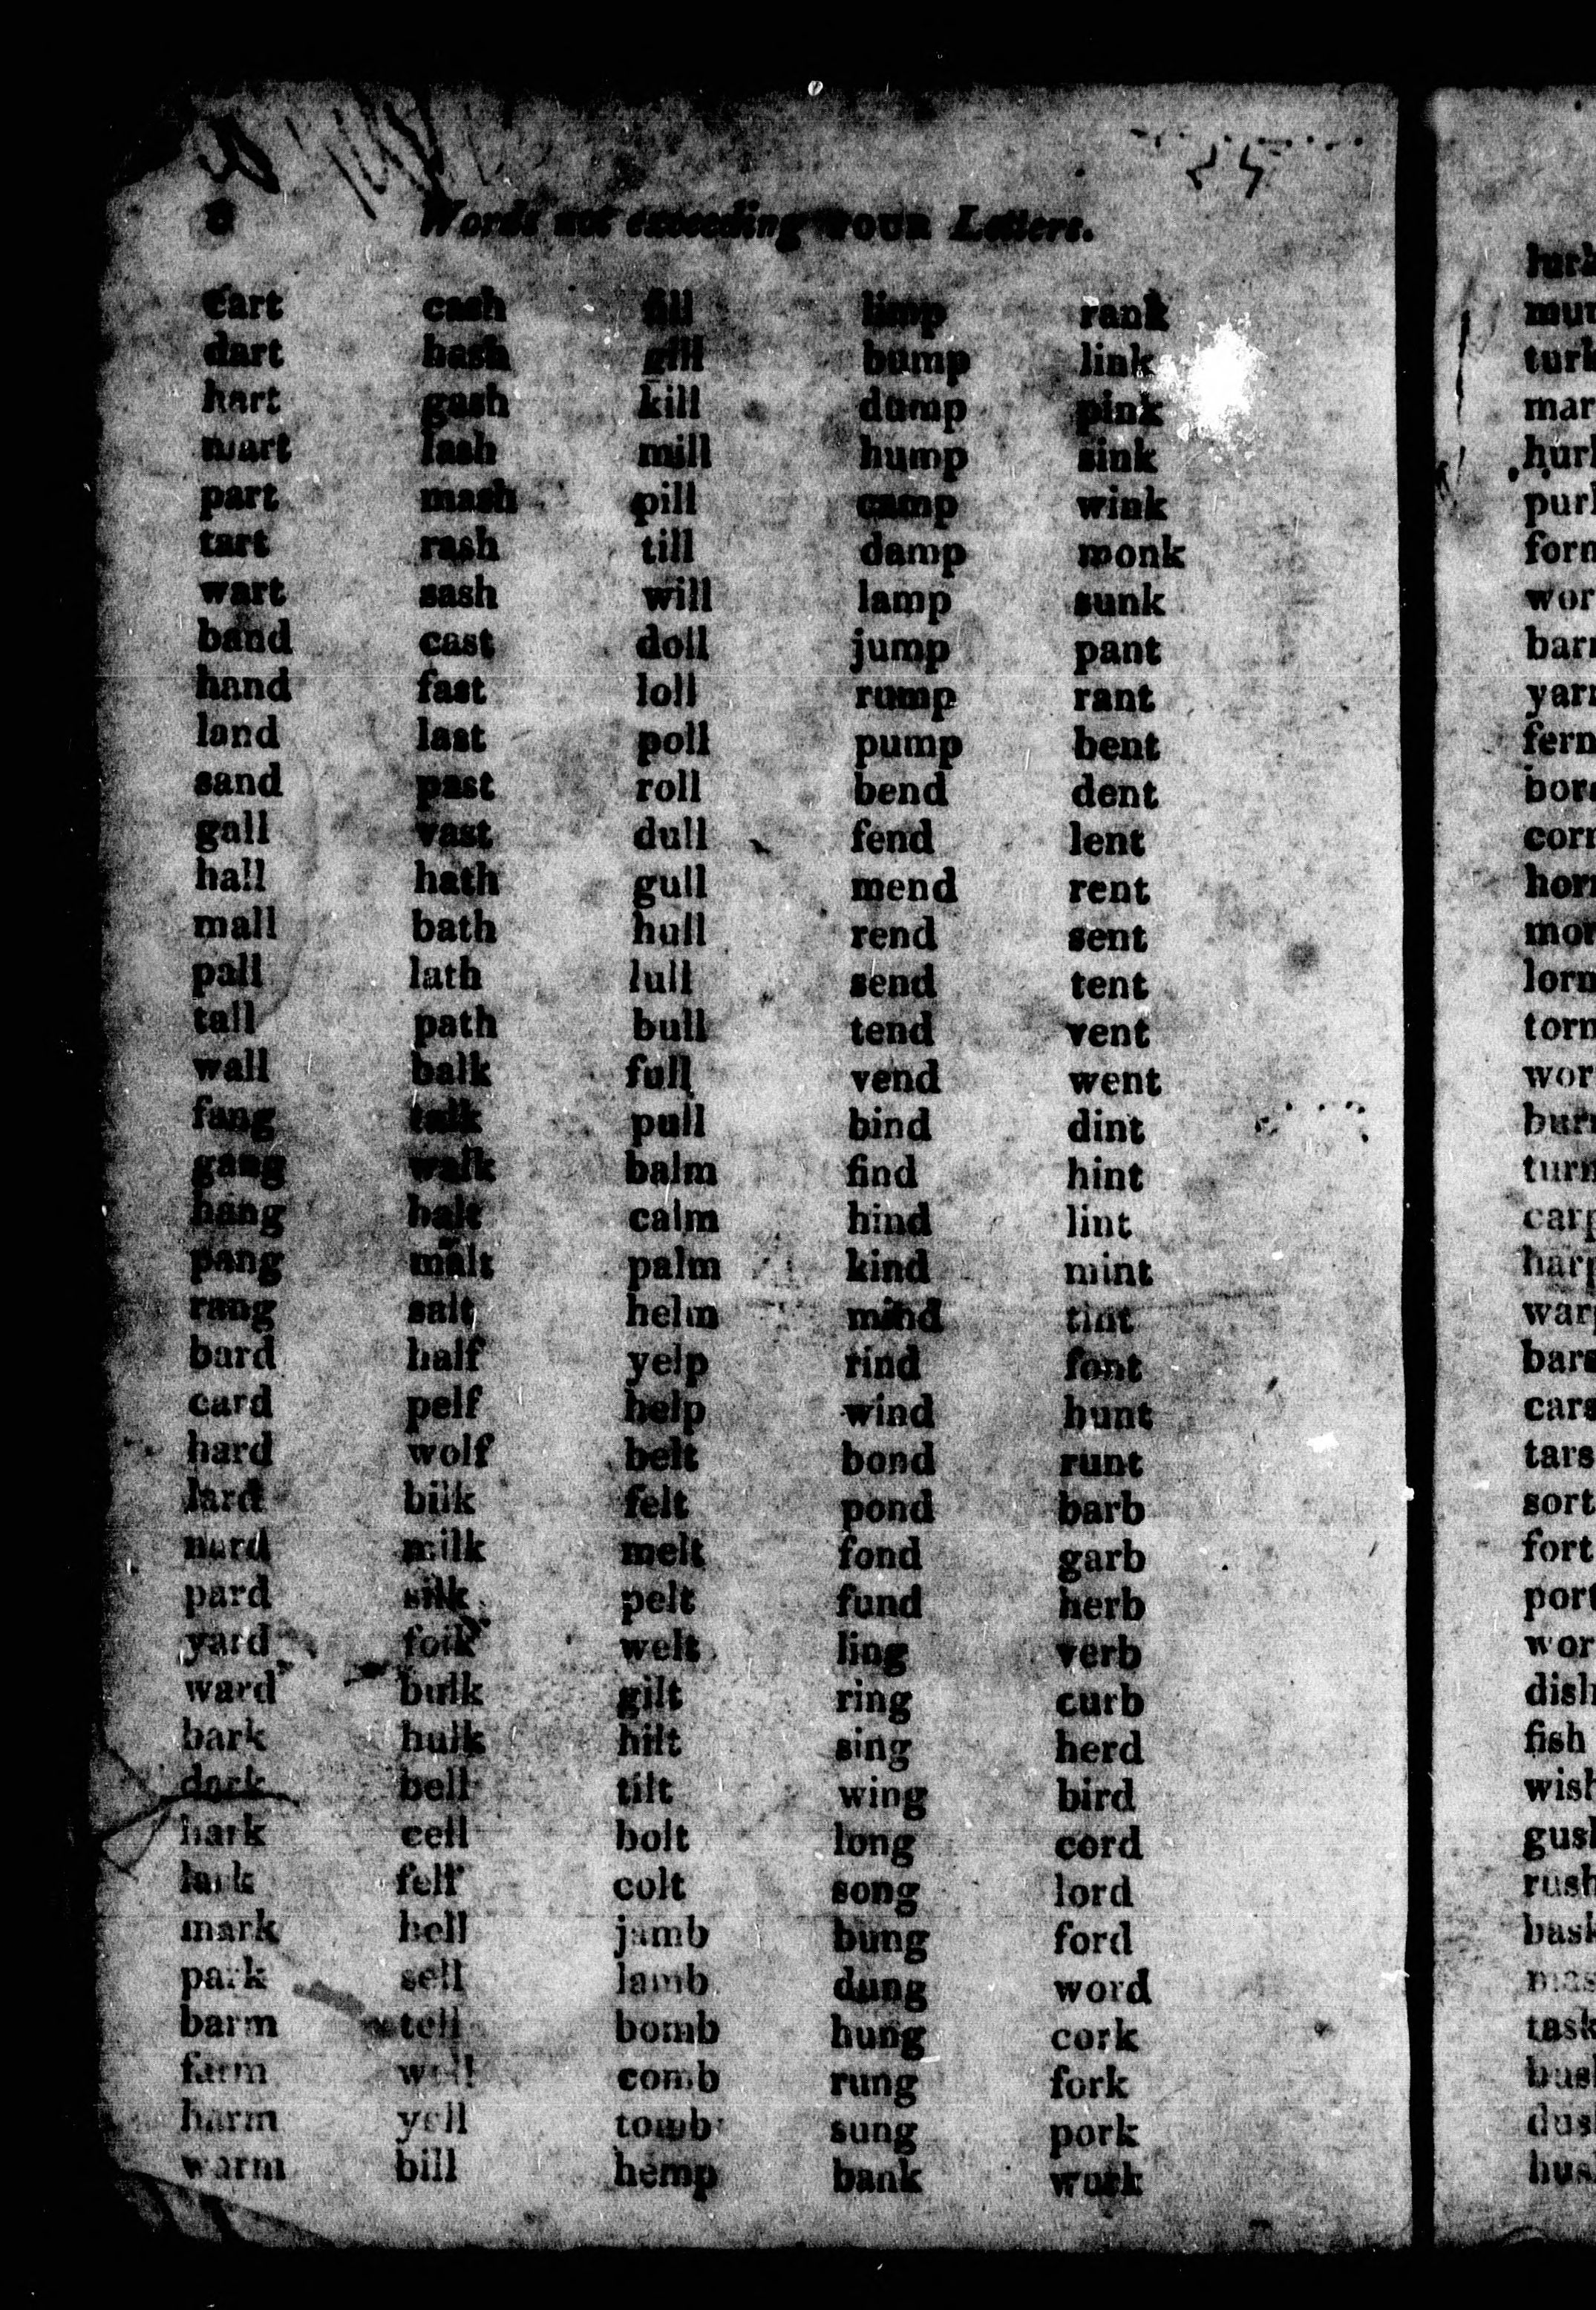 8 Words not exceeding FOUR Letters.
cart cash fill limp rank
dart hash gill bump link
hart gash kill dump pink
mart lash mill hump sink
part mash pill camp wink
tart rash till damp monk
wart sash will lamp sunk
band cast doll jump pant
hand fast loll rump rant
land last poll pump bent
sand past roll bend dent
gall vast dull fend lent
hall hath gull mend rent
mall bath hull rend sent
pall lath lull send tent
tall path bull tend vent
wall balk full vend went
fang talk pull bind dint
gang walk balm find hint
hang halt calm hind lint
pang malt palm kind mint
rang salt helm mind tint
bard half yelp rind font
card pelf help wind hunt
hard wolf belt bond runt
lard bilk felt pond barb
nard milk melt fond garb
pard silk pelt fund herb
yard folk welt ling verb
ward bulk gilt ring curb
bark hulk hilt sing herd
dark bell tilt wing bird
hark cell bolt long cord
lark fell colt song lord
mark hell jamb bung ford
park sell lamb dung word
barm tell bomb hung cork
farm well comb rung fork
harm yell tomb sung pork
warm bill hemp bank work
fish
tars
sort
fort